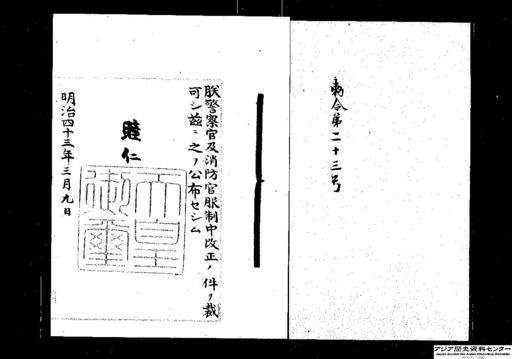 勅令第二十三号
朕警察官及消防官服制中改正ノ件ヲ裁
可シ茲ニ之ヲ公布セシム
睦仁
天皇御璽
明治四十三年三月九日
アジア歴史資料センター
Japan Center for Asian Historical Records